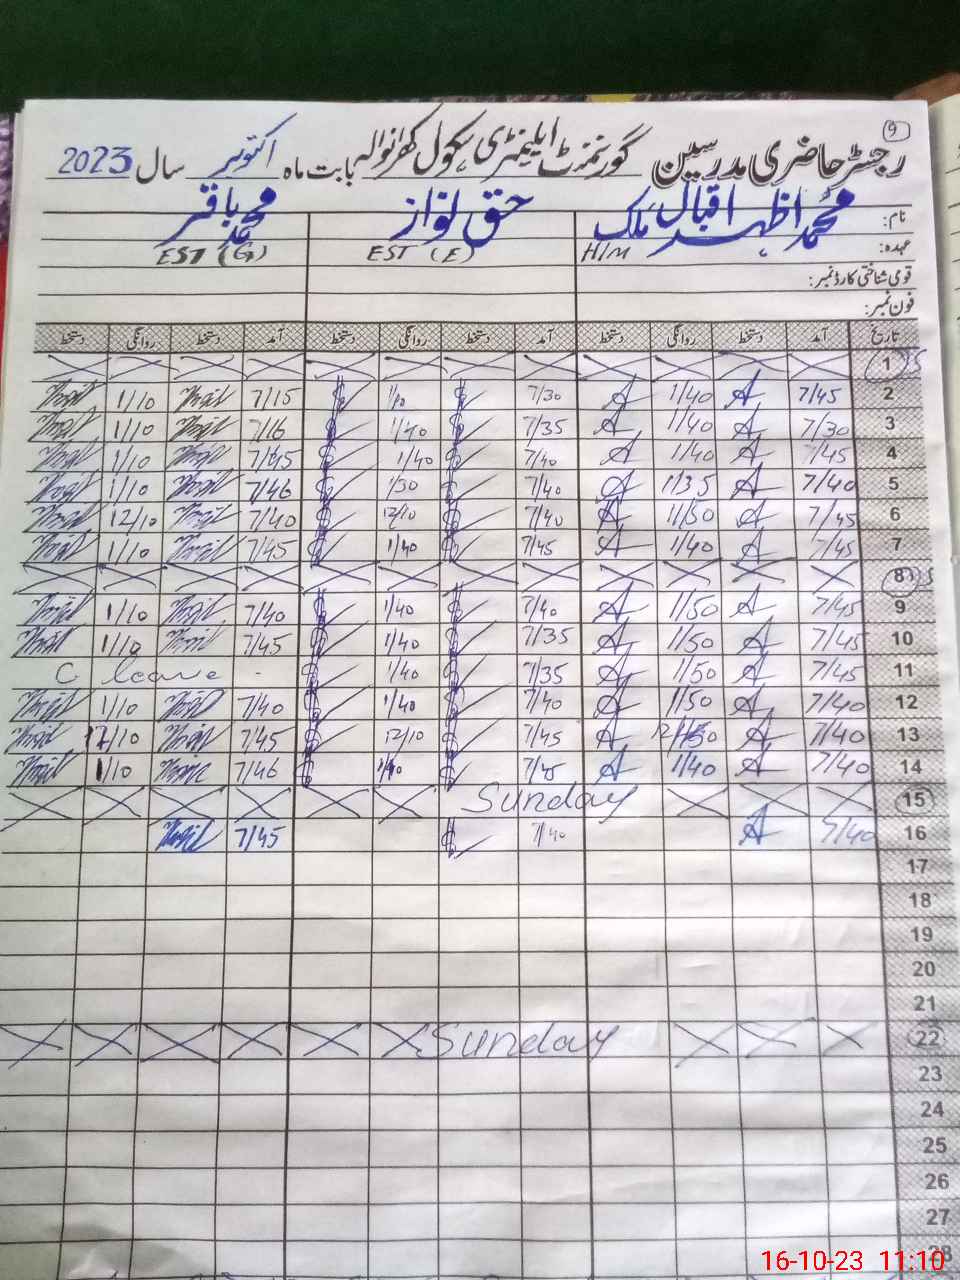 9
رجسٹر حاضری مدرسین گورنمنٹ ایلیمنٹری سکول بابت ماہ اکتوبر سال 2023
نام: محمد اظہر اقبال ملک حق نواز محمد باقر
عہدہ: H/M EST (E) EST (G)
قومی شناختی کارڈ نمبر:
فون نمبر:
تاریخ آمد دستخط روانگی دستخط آمد دستخط روانگی دستخط آمد دستخط روانگی دستخط
1
2 7/45 A 1/40 A 7/30 1/10 7/15 1/10
3 7/30 A 1/40 A 7/35 1/40 7/16 1/10
4 7/45 A 1/40 A 7/40 1/40 7/45 1/10
5 7/40 A 1/35 A 7/40 1/30 7/46 1/10
6 7/45 A 11/50 A 7/40 12/10 7/40 12/10
7 7/45 A 1/40 A 7/45 1/40 7/45 1/10
8
9 7/45 A 1/50 A 7/40 1/40 7/40 1/10
10 7/45 A 1/50 A 7/35 1/40 7/45 1/10
11 7/45 A 1/50 A 7/35 1/40 C leave
12 7/40 A 1/50 A 7/40 1/40 7/40 1/10
13 7/40 A A 7/45 12/10 7/45 12/10
14 7/40 A 1/40 A 7/45 7/46 1/10
15 Sunday
16 7/40 A 7/40 7/45
17
18
19
20
21
22 Sunday
23
24
25
26
27
28
16-10-23 11:10